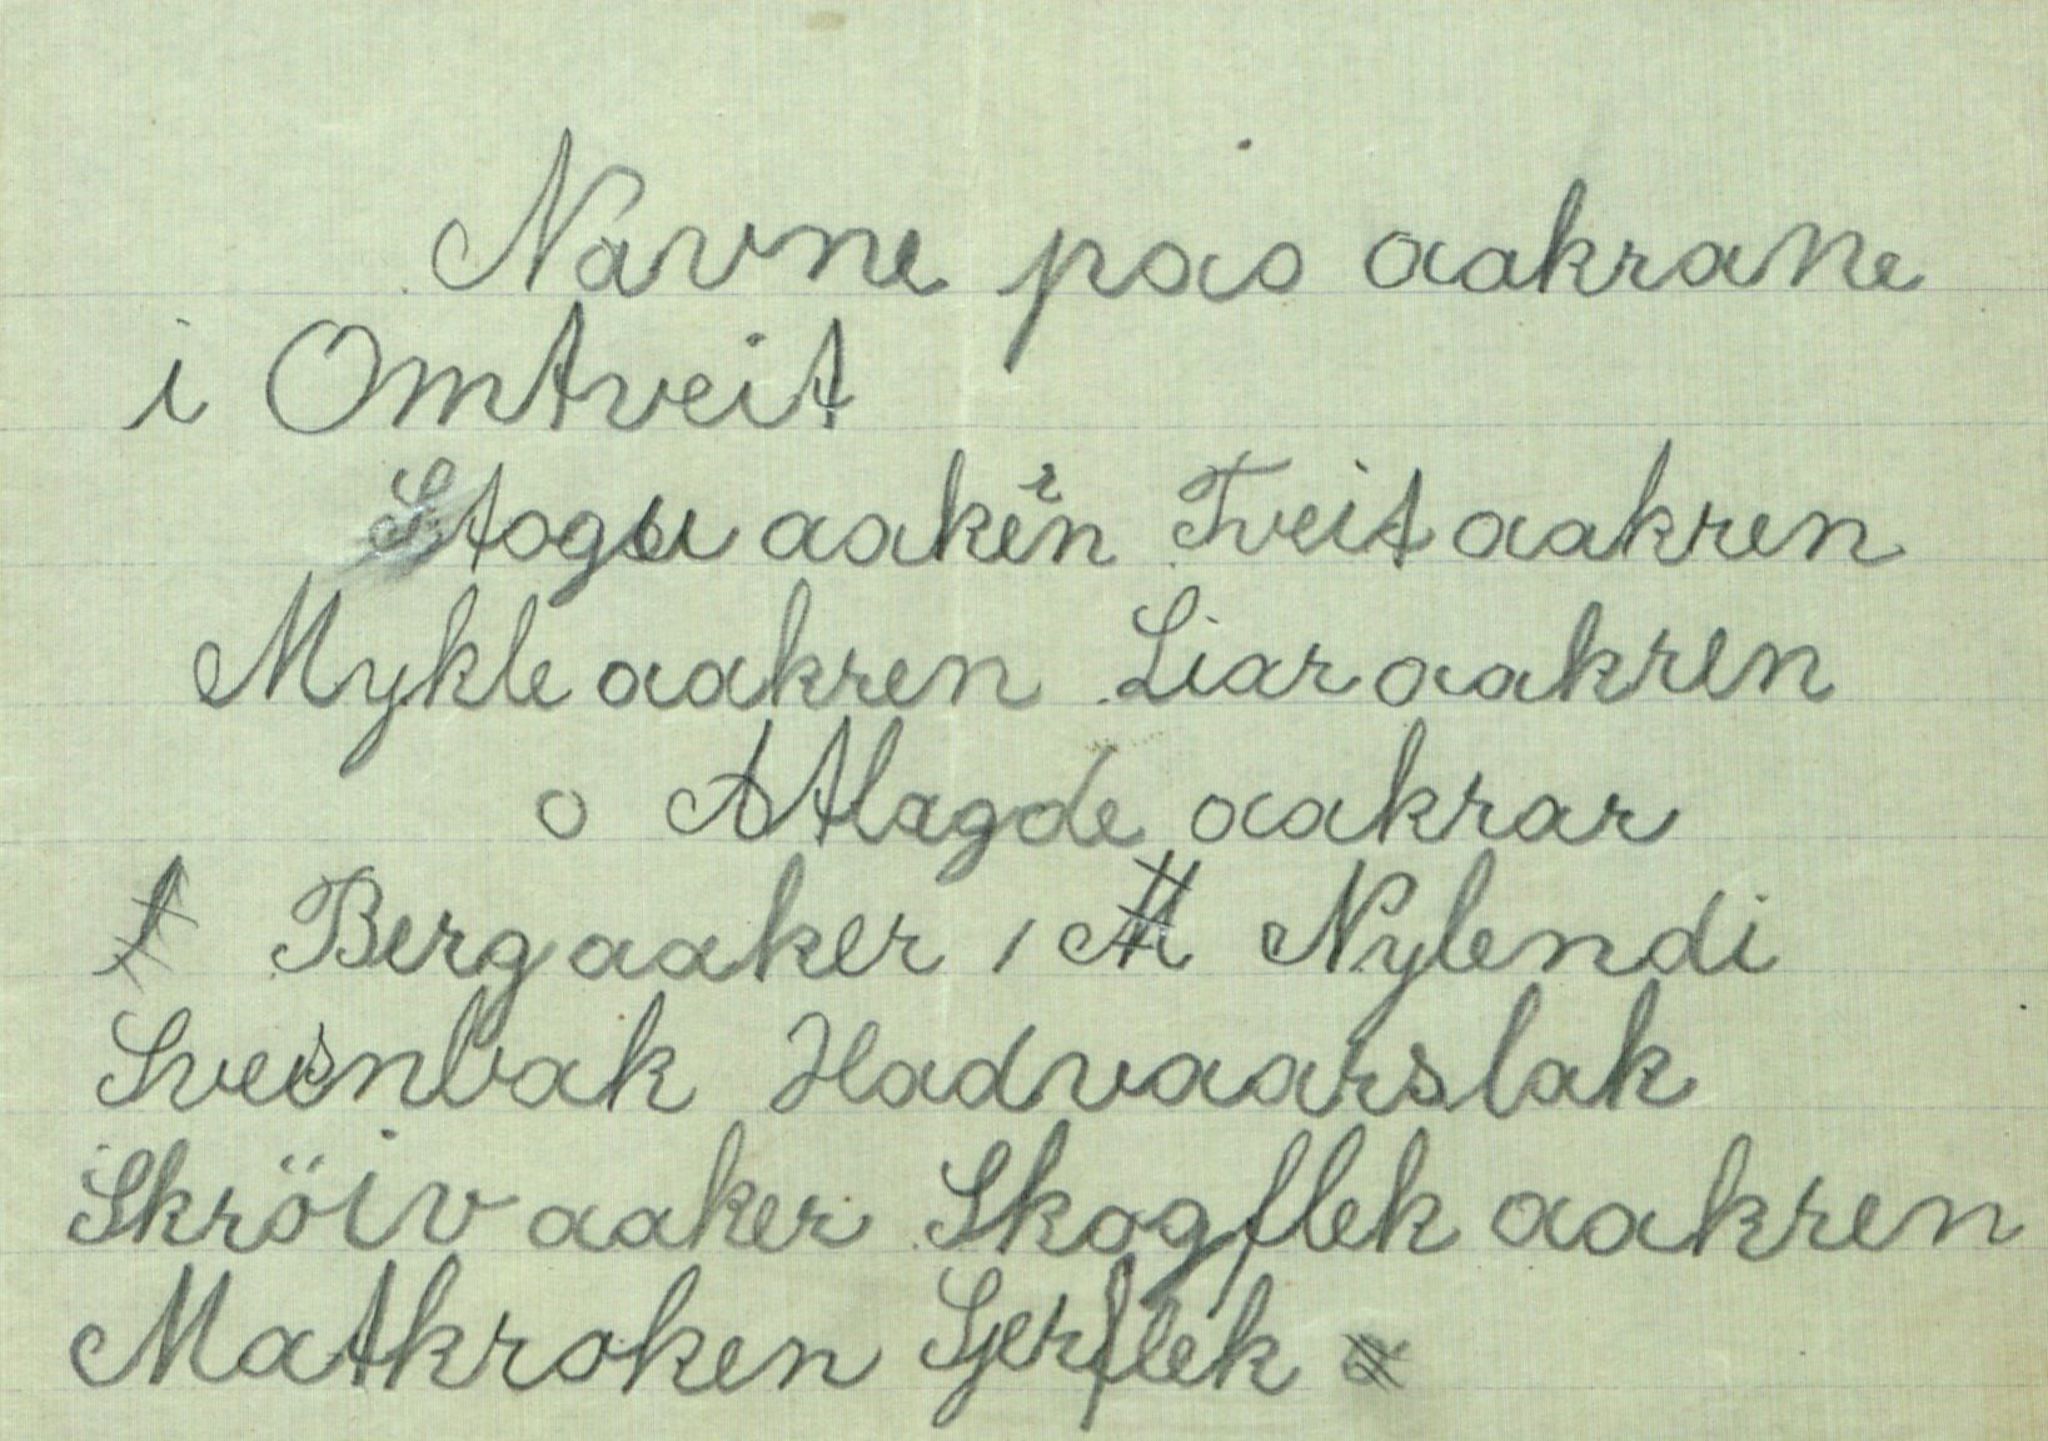 Navne paa aakrane
i Omtveit
Stogu aakren Tveit aakren
Mykle aakren Liar aakren
o Atlagde aakrar
Berg aaker, Nylendi
Sveinbak Hadvaarslak
Skröiv aaker Skogflek aakren
Matkroken Sjerflek